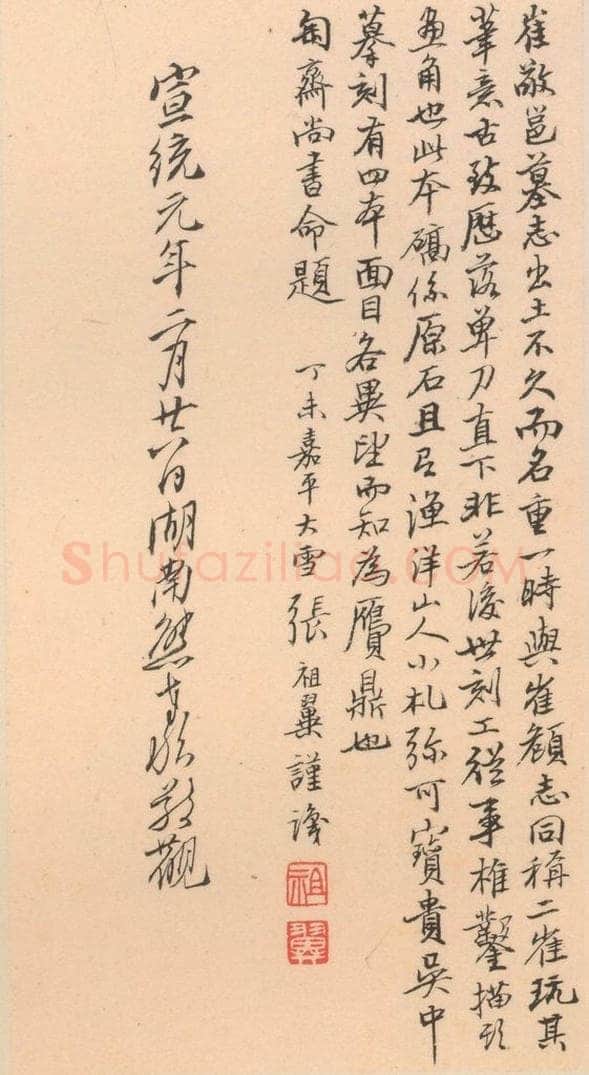 崔敬邕墓志出土不久而名重一時與崔頠志同稱二崔玩其
筆意古致歷落單刀直下非若後世刻工從事椎鑿描頭
畫角也此本礭係原石且有漁洋山人小札弥可寶貴吳中
摹刻有四本面目各異望而知為贋鼎也
匋齋尚書命題 丁未嘉平大雪張祖翼謹識
祖
翼
宣統元年二月廿八日湖南熊希齡敬觀
Shufaziliao.com